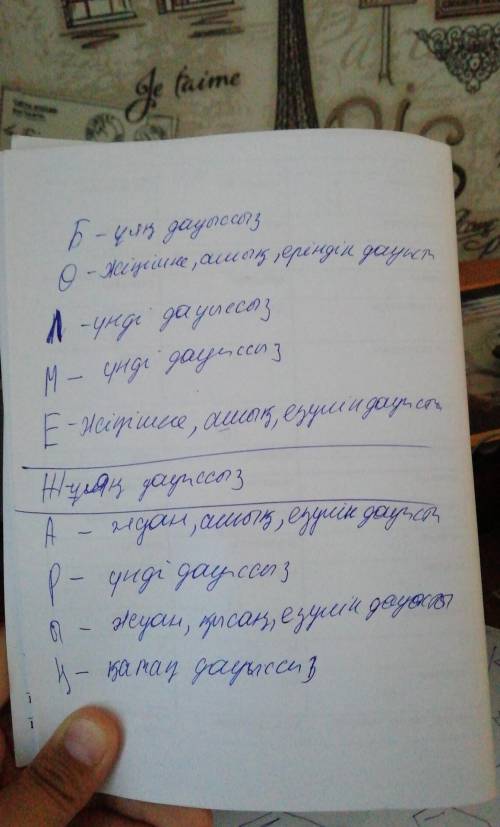 Je t'aime
Б – ұяң дауыссыз
Ө – жіңішке, ашық, еріндік дауысты
Л – үнді дауыссыз
М – үнді дауыссыз
Е – жіңішке, ашық, езулік дауысты
Ж – ұяң дауыссыз
А – жуан, ашық, езулік дауысты
Р – үнді дауыссыз
Ы – жуан, қысаң, езулік дауысты
Қ – қатаң дауыссыз